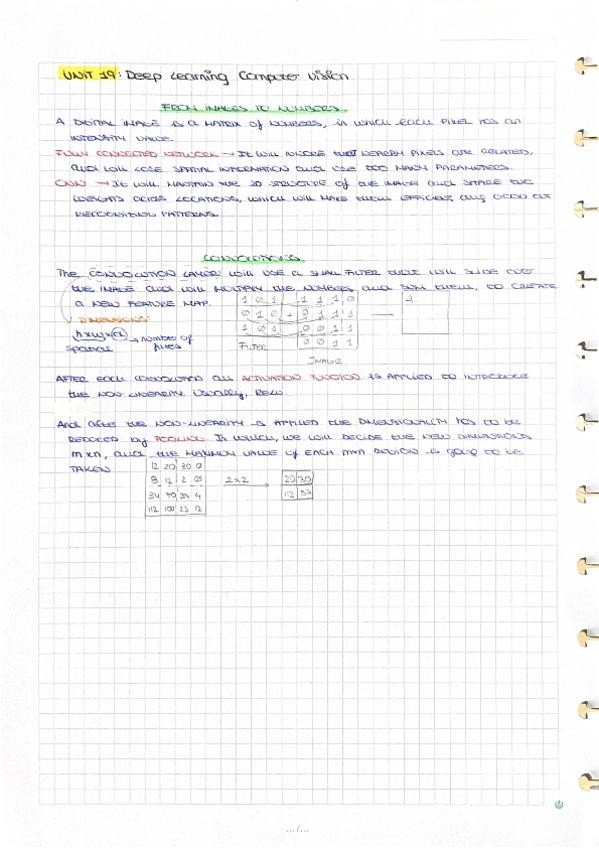 UNIT 19: Deep Learning Computer Vision
FROM IMAGES TO NUMBERS
A DIGITAL IMAGE IS A MATRIX OF NUMBERS, in which each PIXEL HAS AN
INTENSITY VALUE.
FULLY CONNECTED NETWORK → IT WILL IGNORE THAT NEARBY PIXELS ARE RELATED,
AND WILL LOSE SPATIAL INFORMATION AND USE TOO MANY PARAMETERS.
CNN → IT WILL MAINTAIN THE 2D STRUCTURE OF THE IMAGE AND SHARE THE
WEIGHTS ACROSS LOCATIONS, WHICH WILL MAKE THEM EFFICIENT AND GOOD AT
RECOGNISING PATTERNS.
CONVOLUTIONS
THE CONVOLUTION LAYER WILL USE A SMALL FILTER THAT WILL SLIDE OVER
THE IMAGE AND WILL MULTIPLY THE NUMBERS AND SUM THEM, TO CREATE
A NEW FEATURE MAP.
1 0 1 1 1 1 0
DIMENSIONS:
0 1 0 0 1 1 1
h x w x d → NUMBER OF
1 0 1 0 0 1 1
SPATIAL
FILTER 0 0 1 1
IMAGE
AFTER EACH CONVOLUTION AN ACTIVATION FUNCTION IS APPLIED TO INTRODUCE
THE NON LINEARITY. USUALLY, RELU.
AND AFTER THE NON-LINEARITY IS APPLIED THE DIMENSIONALITY HAS TO BE
REDUCED by POOLING. IN WHICH, WE WILL DECIDE THE NEW DIMENSIONS
m x n, AND THE MAXIMUM VALUE OF EACH m x n REGION IS GOING TO BE
TAKEN
12 20 30 0
8 12 2 0 2x2 → 20 30
34 70 37 4 112 37
112 100 25 12